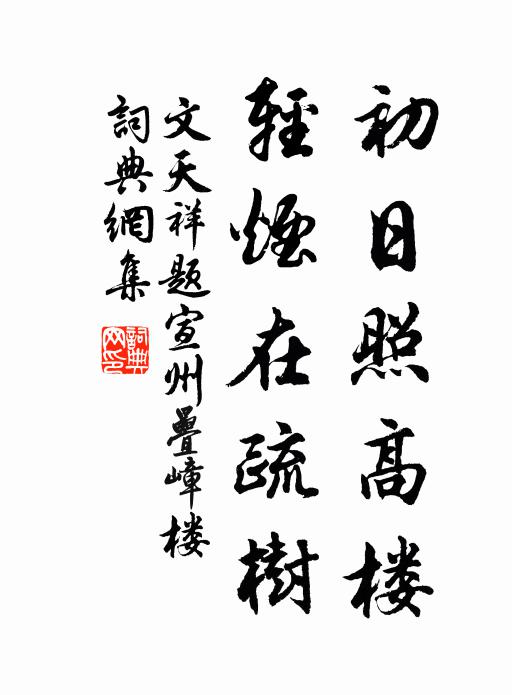 初日照高楼
輕煙在疏樹
文天祥题宣州疊嶂楼
詞典網集
詞典网印